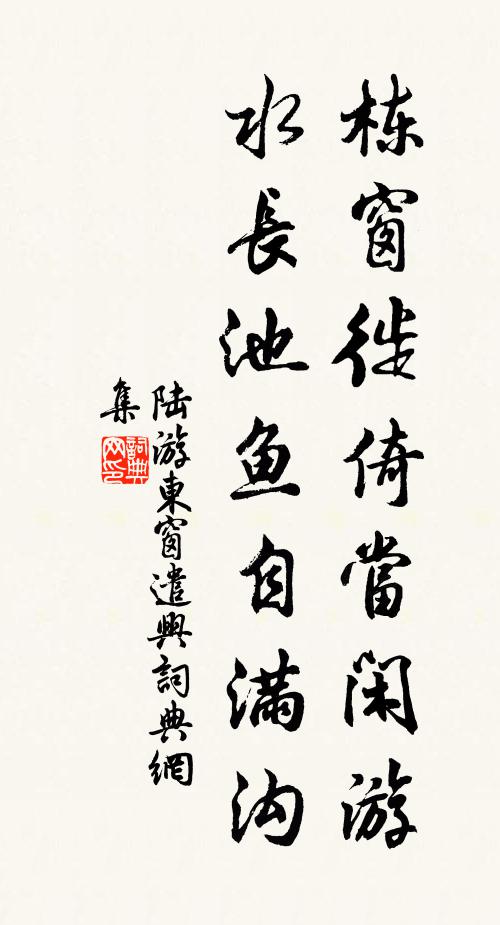 栋窗徙倚當閑游
水長池鱼自滿沟
陆游東窗遣興詞典網
集
詞典網印